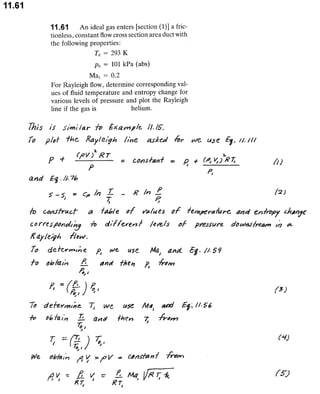 11.61
11.61 An ideal gas enters [section (1)] a fric-
tionless, constant flow cross section area duct with
the following properties:
T₀ = 293 K
p₀ = 101 kPa (abs)
Ma₁ = 0.2
For Rayleigh flow, determine corresponding val-
ues of fluid temperature and entropy change for
various levels of pressure and plot the Rayleigh
line if the gas is helium.
This is similar to Example 11.15.
To plot the Rayleigh line asked for we use Eq. 11.111
p + (ρV)² RT / p = constant = p₁ + (ρ₁V₁)² RT₁ / p₁ (1)
and Eq. 11.76
s - s₁ = cₚ ln T/T₁ - R ln p/p₁ (2)
to construct a table of values of temperature and entropy change
corresponding to different levels of pressure downstream in a
Rayleigh flow.
To determine p₁ we use Ma₁ and Eq. 11.59
to obtain p₁/p₀,₁ and then p₁ from
p₁ = (p₁/p₀,₁) p₀,₁ (3)
To determine T₁ we use Ma₁ and Eq. 11.56
to obtain T₁/T₀,₁ and then T₁ from
T₁ = (T₁/T₀,₁) T₀,₁ (4)
We obtain ρ₁V₁ = ρV = constant from
ρ₁V₁ = p₁/RT₁ V₁ = p₁/RT₁ Ma₁ √RT₁k (5)